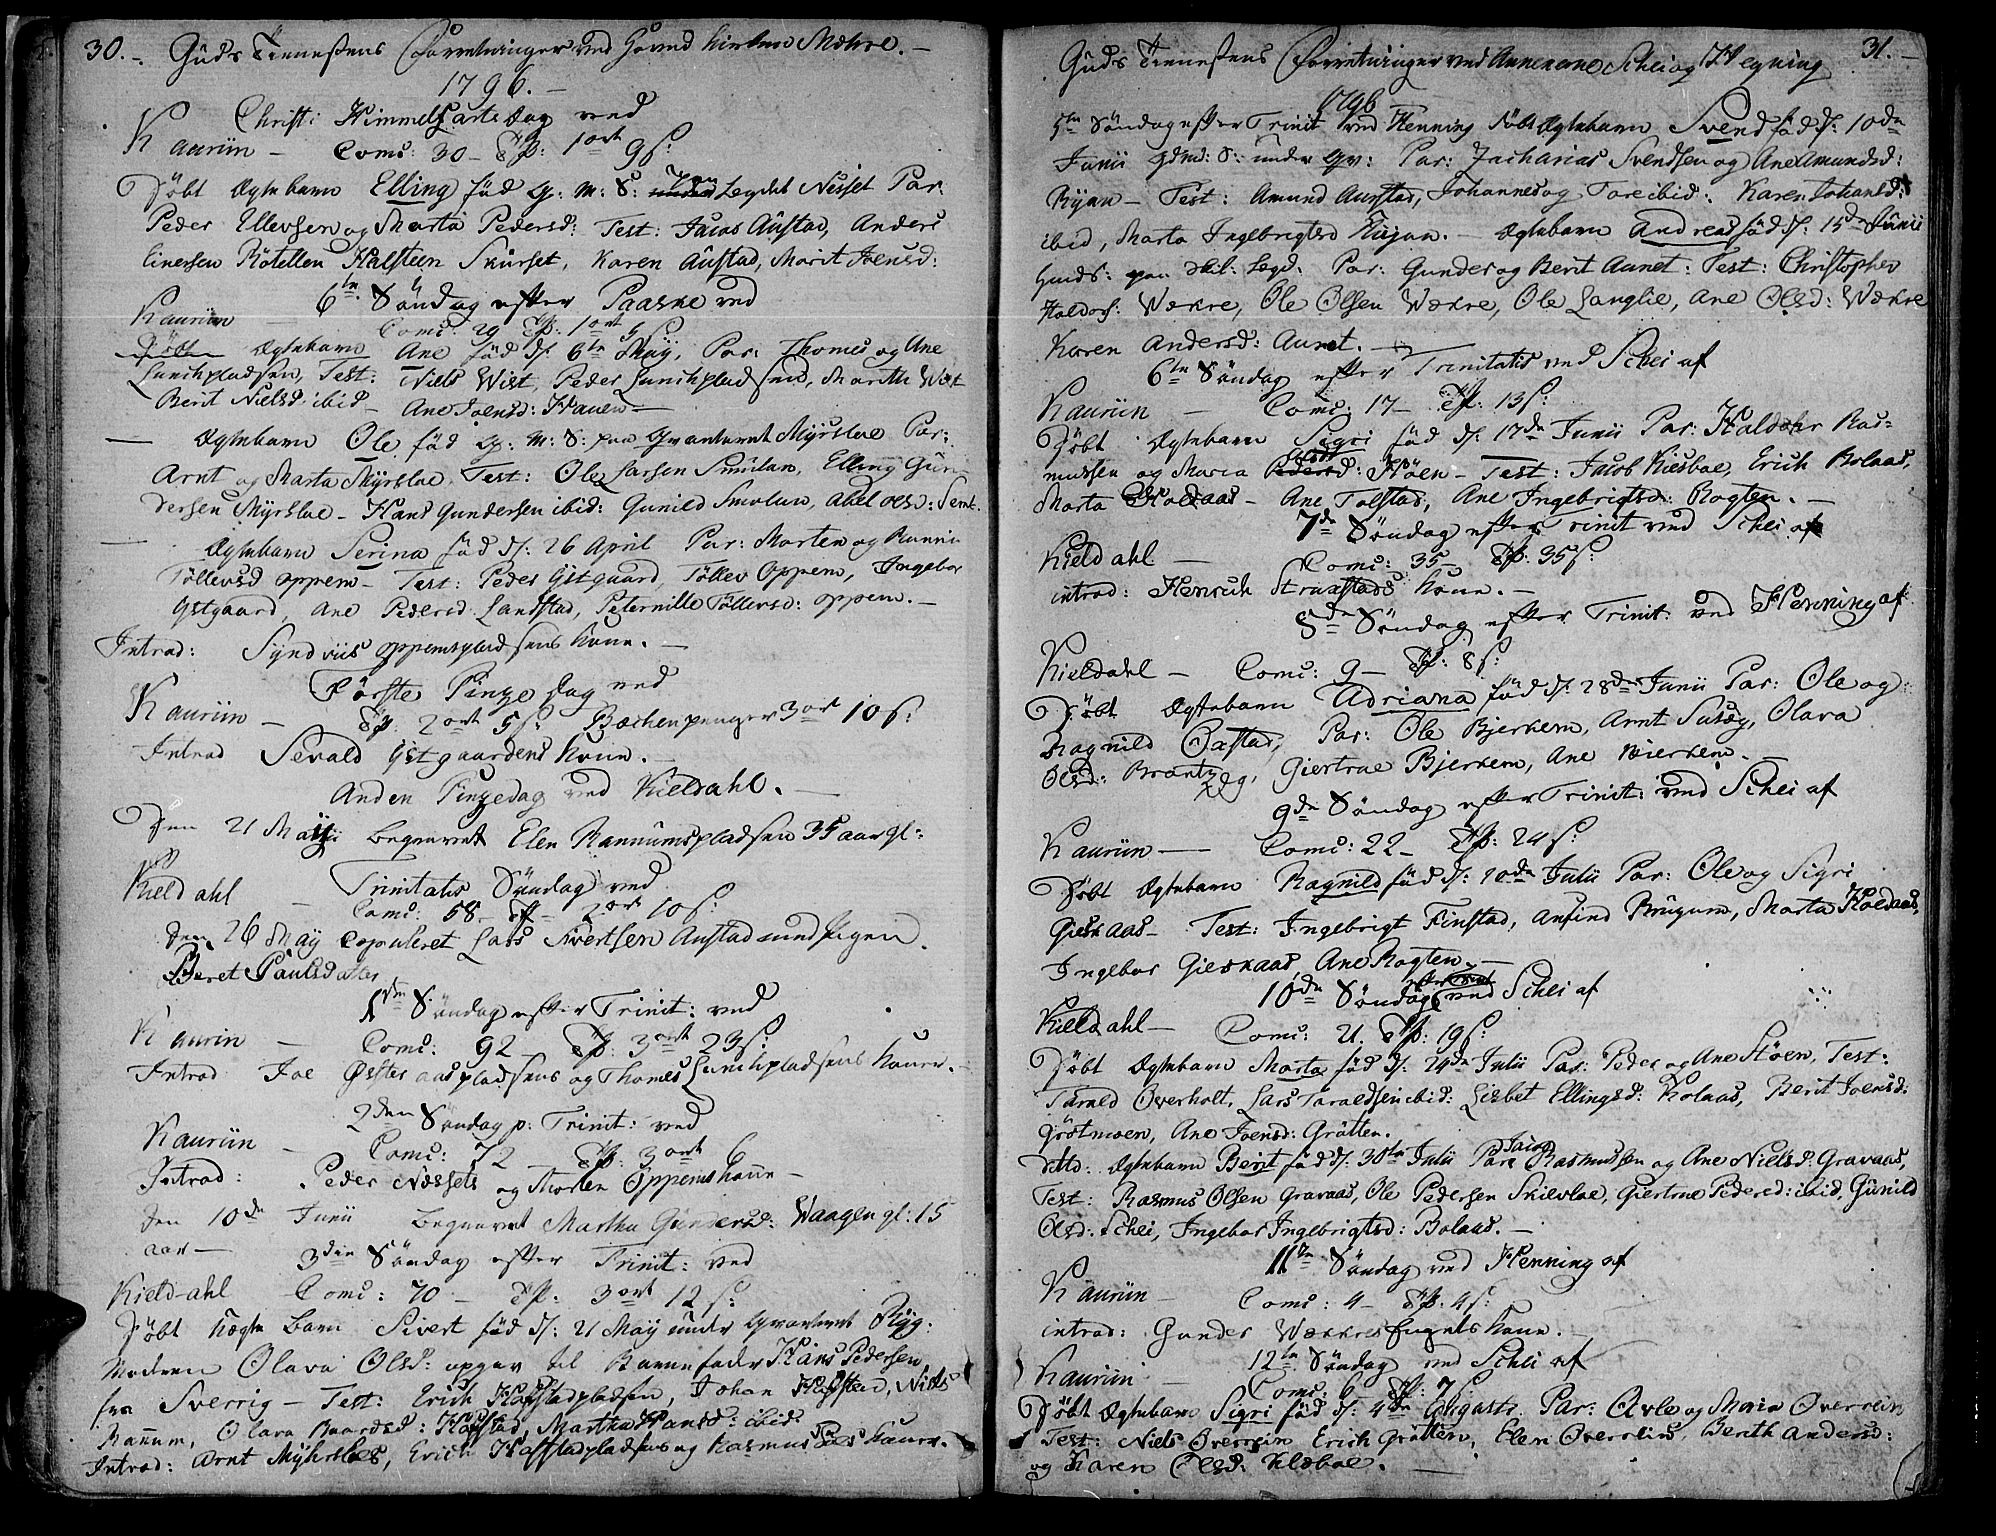 30. - Guds Tienestens Forretninger ved Hoved Kirken Mære. -
1796. -
Christi Himmelfarts Dag ved
Kauriin - Comu: 30 - Tp: 1 ort 9 s:
Døbt Ægtebarn Elling fød g. m: S: Legdet Nesset Par.
Peder Ellevsen og Marta Pedersd: Test: Jacob Austad, Anders
Einersen Røtellen Halsteen Skurset, Karen Austad, Marit Joensd:
6te Søndag efter Paaske ved
Kauriin - Comu: 29 Tp: 1 ort s:
Ægtebarn Ane fød d: 6te May, Par: Thomes og Ane
Lunchpladsen, Test: Niels Wist, Peder Lunchpladsen, Marith Wist
Berit Nielsd ibid - Ane Joensd: Hauen -
- Ægtebarn Ole fød g: m: S: paa Qvarteret Myrslae Par:
Arnt og Marta Myrslae, Test: Ole Larsen Smulan, Elling Gun
dersen Myrslae - Hans Gundersen ibid: Gunild Smolan, Abel olsd: Semb.
- Ægtebarn Serina fød d: 26 April Par: Morten og Rannia
Tøllevsd oppem - Test: Peder Ystgaard, Tøllev Oppem, Ingebor
Ystgaard, Ane Pedersd Landstad, Peternille Tøllevsd: oppem. -
Introd: Syndviis oppemspladsens Kone. -
Første Pinze Dag ved
Kauriin - Tp. 2 ort 5 s: Bechenpenger 3 ort 10 s:
Introd Sevald Ystgaardens Kone. -
Anden Pinzedag ved Kieldahl. -
Den 21 Maÿ begravet Elen Rannumspladsen 35 aar gl:
Trinitatis Søndag ved
Kieldahl - Comu: 58 - Tp - 2 ort 10 s:
Den 26 Maÿ Copuleret Lars Sivertsen Austad med Pigen
Beret Paulsdatter
1ste Søndag efter Trinit: ved
Kaurin - Comu: 92 - Tp: 3 ort 23 s:
Introd Joe Østeraaspladsens og Thomes Lunchpladsens Koner. -
2den Søndag p: Trinit: ved
Kauriin - Comu: 72 - Tp: 3 ort 6
Introd: Peder Nessets og Morten Oppems Kone -
Den 10de Junii begravet Martha Gundersd: Waagen gl: 15
aar -
3die Søndag efter Trinit: ved
Kield-ahl - Comu: 70 - Tp: 3 ort 12 s:
Døbt Uægte Barn Sivert fød d: 21 May under Qvarteret Ryg.
Moderen Olava Olsd: opgav til Barnefader Hans Pedersen
fra Sverrig - Test: Erich Hafstadpladsen, Johan Hafstad, Niels
Rannum, Olava Baardsd: Hafstad, Martha Hansd: ibid.
Introd: Arnt Myhrslaes, Erich Hafstadpladsens og Rasmus Koner.
Guds Tienestens Forretninger ved Annexerne Schei og Hegning 31. -
1796
5te Søndag efter Trinit ved Henning Døbt Ægtebarn Svend fød d: 10de
Junii under Qv: Par: Zacharias Svendsen og Ane Amundsd:
Ryan - Test: Amund Aunstad, Johannes og Tore ibid: Karen Johansd:
ibid, Marta Ingebrigtsd Ryan. - Ægtebarn Andreas fød d: 15de Junii
paa Legd. Par: Gunder og Berit Aunet: Test: Christopher
Haldors: Wækre, Ole Olsen Wækre, Ole Langlie, Ane Olsd: Wækre
Karen Andersd: Aunet. -
6te Søndag efter Trinitatis ved Schei af
Kauriin - Comu: 17 - Tp. 13 s:
Døbt Ægtebarn Sigri fød d: 17de Junii Par: Haldohr Ras-
mussen og Maria Støen - Test: Jacob Kiesbae, Erich Bolaas,
Marta Koldaas - Ane Tolstad, Ane Ingebrigtsd: Rogten. -
7de Søndag efter Trinit ved Schei af
Kieldahl - Comu: 35 - Tp. 35 s:
introd: Henrich Strugstads Kone. -
8de Søndag efter Trinit: ved Henning af
Kieldahl - Comu: 9 - Tp: 8 s:
Døbt Ægtebarn Adriana fød d: 28de Junii Par: Ole og
Ragnild Oxstad, Par: Ole Bjerkem, Arnt Suseg, Olava
Olsd: Brantzeg, Giertrue Bjerkem, Ane Bierkem. -
9de Søndag efter Trinit: ved Schei af
Kauriin - Comu: 22 - Tp: 24 s:
Døbt Ægtebarn Ragnild fød d: 10de Julii Par: Ole og Sigri
Gieskaas - Test: Ingebrigt Finstad, Anfind Brugum, Marta Koldaas,
Ingebor Gieskaas, Ane Rogten. -
10de Søndag efter Trinit ved Schei af
Kieldahl - Comu: 21. Tp: 19 s:
Døbt Ægtebarn Marta fød d: 24de Julii Par: Peder og Ane Støen, Test:
Tarald Overholt, Lars Taraldsen ibid: Lisbet Ellingsd: Kolaas, Berit Joensd:
Grøtmoen, Ane Joensd: Grøtten.
ditto. Ægtebarn Berit fød d: 30te Julii Par: Jacob Rasmussen og Ane Nielsd: Gravaas,
Test: Rasmus Olsen Gravaas, Ole Pedersen Skievlae, Giertrue Pedersd: ibid, Gunild
Olsd: Schei, Ingebor Ingebrigtsd: Bolaas. -
11te Søndag ved Henning af
Kauriin - Comu: 4 - Tp. 4 s:
introd: Gunder Wækres Kone. -
12te Søndag ved Schei af
Kauriin - Comu: 6 - Tp. 7 s:
Døbt Ægtebarn Sigri fød d: 4de Augusti. Par: Arle og Maria Overrein
Test: Niels Overrein Erich Grøtten, Elen Overrein, Berith Andersd:
og Karen Olsd: Klæboe. -